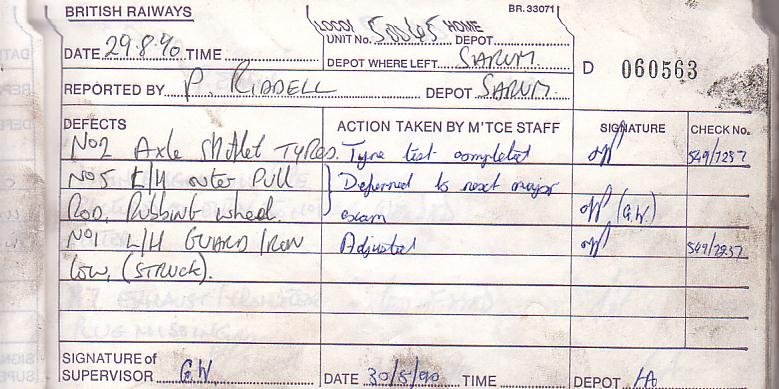 BRITISH RAILWAYS BR. 33071
LOCO/ UNIT No. 50045 HOME DEPOT
DATE 29.8.90 TIME
DEPOT WHERE LEFT SARUM D 060563
REPORTED BY P. RIDDELL DEPOT SARUM.
DEFECTS ACTION TAKEN BY M'TCE STAFF SIGNATURE CHECK No.
No2 Axle TYRES. Tyre test completed 549/7257
No5 L/H outer PULL Deferred to next major
ROD, Rubbing wheel exam (G.W.)
No1 L/H GUARD IRON Adjusted 549/7257
low, (STRUCK).
SIGNATURE of
SUPERVISOR G.W. DATE 30/5/90 TIME DEPOT LA